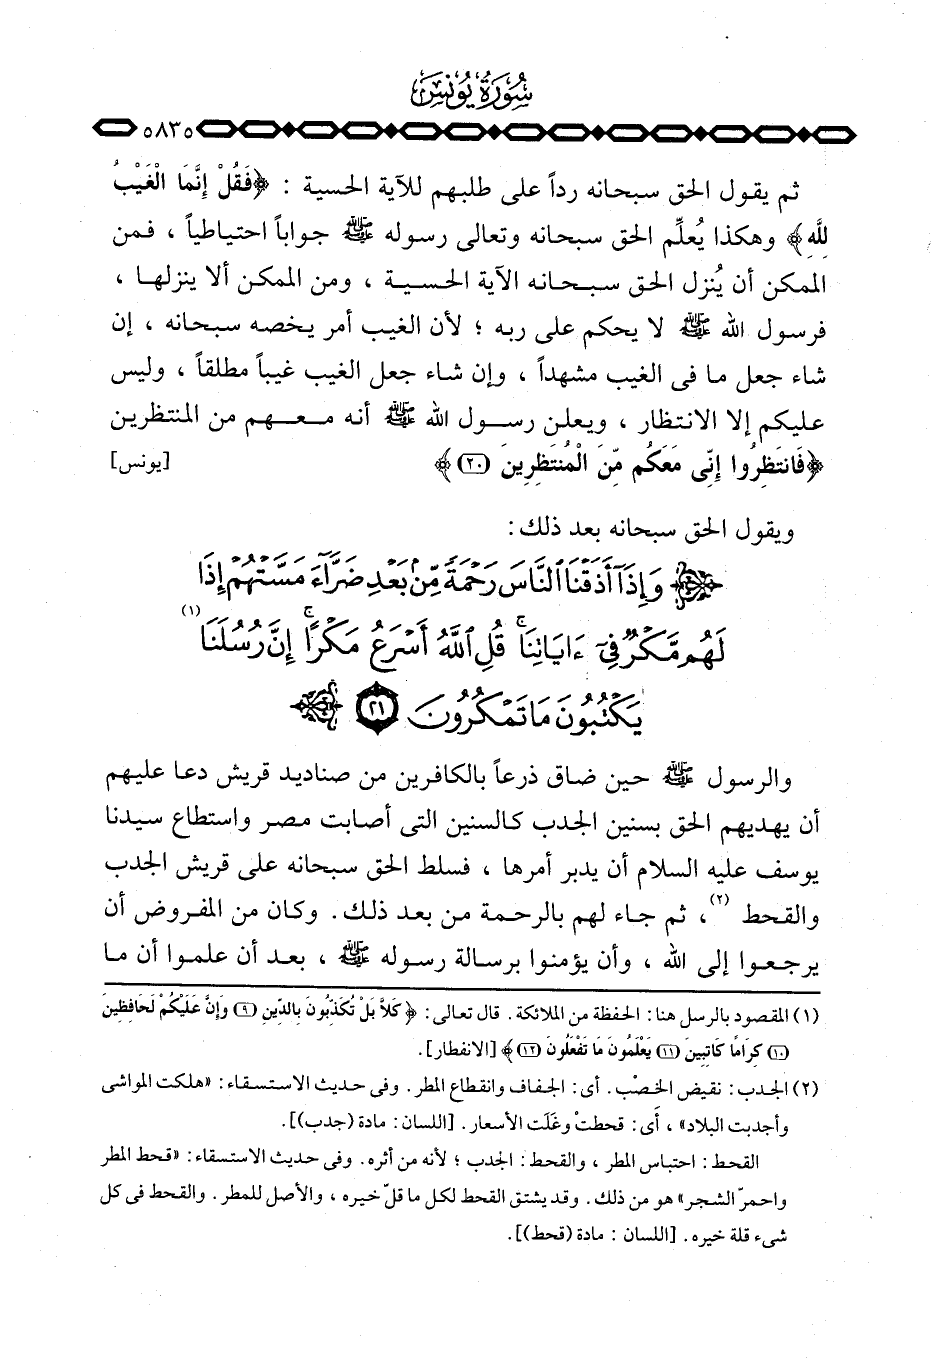 سُورَةُ يُونُسَ
٥٨٣٥
ثم يقول الحق سبحانه رداً على طلبهم للآية الحسية : ﴿فَقُلْ إِنَّمَا الْغَيْبُ
لِلَّهِ﴾ وهكذا يُعلِّم الحق سبحانه وتعالى رسوله ﷺ جواباً احتياطياً ، فمن
الممكن أن يُنزل الحق سبحانه الآية الحسية ، ومن الممكن ألا ينزلها ،
فرسول الله ﷺ لا يحكم على ربه ؛ لأن الغيب أمر يخصه سبحانه ، إن
شاء جعل ما فى الغيب مشهداً ، وإن شاء جعل الغيب غيباً مطلقاً ، وليس
عليكم إلا الانتظار ، ويعلن رسول الله ﷺ أنه معهم من المنتظرين
﴿فَانتَظِرُوا إِنِّى مَعَكُم مِّنَ الْمُنتَظِرِينَ (٢٠)﴾ [يونس]
ويقول الحق سبحانه بعد ذلك:
وَإِذَآ أَذَقْنَا ٱلنَّاسَ رَحْمَةً مِّنۢ بَعْدِ ضَرَّآءَ مَسَّتْهُمْ إِذَا
لَهُم مَّكْرٌ فِىٓ ءَايَاتِنَا ۚ قُلِ ٱللَّهُ أَسْرَعُ مَكْرًا ۚ إِنَّ رُسُلَنَا (١)
يَكْتُبُونَ مَا تَمْكُرُونَ ٢١
والرسول ﷺ حين ضاق ذرعاً بالكافرين من صناديد قريش دعا عليهم
أن يهديهم الحق بسنين الجدب كالسنين التى أصابت مصر واستطاع سيدنا
يوسف عليه السلام أن يدبر أمرها ، فسلط الحق سبحانه على قريش الجدب
والقحط (٢)، ثم جاء لهم بالرحمة من بعد ذلك. وكان من المفروض أن
يرجعوا إلى الله ، وأن يؤمنوا برسالة رسوله ﷺ ، بعد أن علموا أن ما
(١) المقصود بالرسل هنا: الحفظة من الملائكة. قال تعالى: ﴿كَلاَّ بَلْ تُكَذِّبُونَ بِالدِّينِ (٩) وَإِنَّ عَلَيْكُمْ لَحَافِظِينَ
(١٠) كِرَامًا كَاتِبِينَ (١١) يَعْلَمُونَ مَا تَفْعَلُونَ (١٢)﴾ [الانفطار].
(٢) الجدب: نقيض الخصْب. أى: الجفاف وانقطاع المطر. وفى حديث الاستسقاء: «هلكت المواشى
وأجدبت البلاد» ، أى: قحطتْ وغَلَت الأسعار. [اللسان: مادة (جدب)].
القحط: احتباس المطر ، والقحط: الجدب ؛ لأنه من أثره. وفى حديث الاستسقاء: «قحط المطر
واحمرّ الشجر» هو من ذلك. وقد يشتق القحط لكل ما قلّ خيره ، والأصل للمطر. والقحط فى كل
شىء قلة خيره. [اللسان : مادة (قحط)].